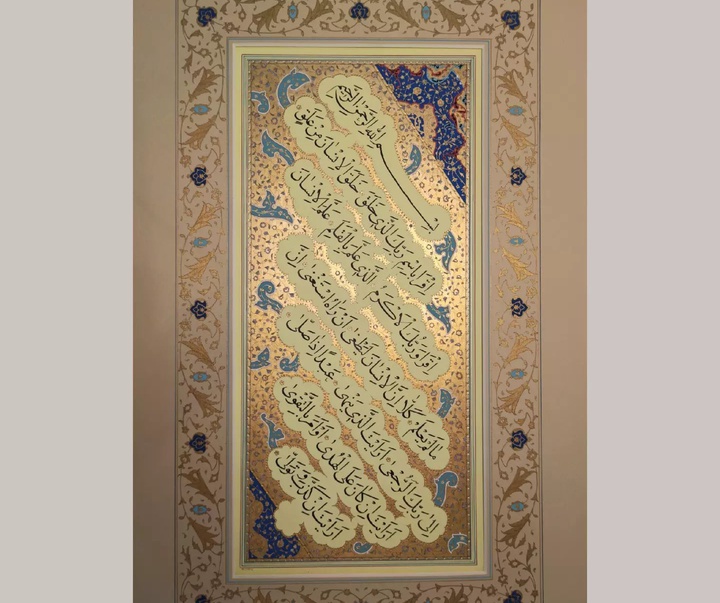 بِسْمِ اللّٰهِ الرَّحْمٰنِ الرَّحيمِ
اِقْرَاْ بِاسْمِ رَبِّكَ الَّذى خَلَقَ خَلَقَ الْاِنْسانَ مِنْ عَلَقٍ
اِقْرَاْ وَرَبُّكَ الْاَكْرَمُ اَلَّذى عَلَّمَ بِالْقَلَمِ عَلَّمَ الْاِنْسانَ
ما لَمْ يَعْلَمْ كَلّا اِنَّ الْاِنْسانَ لَيَطْغىٰ اَنْ رَاٰهُ اسْتَغْنىٰ اِنَّ
اِلىٰ رَبِّكَ الرُّجْعىٰ اَرَاَيْتَ الَّذى يَنْهىٰ عَبْدًا اِذا صَلّىٰ
اَرَاَيْتَ اِنْ كانَ عَلَى الْهُدىٰ اَوْ اَمَرَ بِالتَّقْوىٰ
اَرَاَيْتَ اِنْ كَذَّبَ وَتَوَلّىٰ